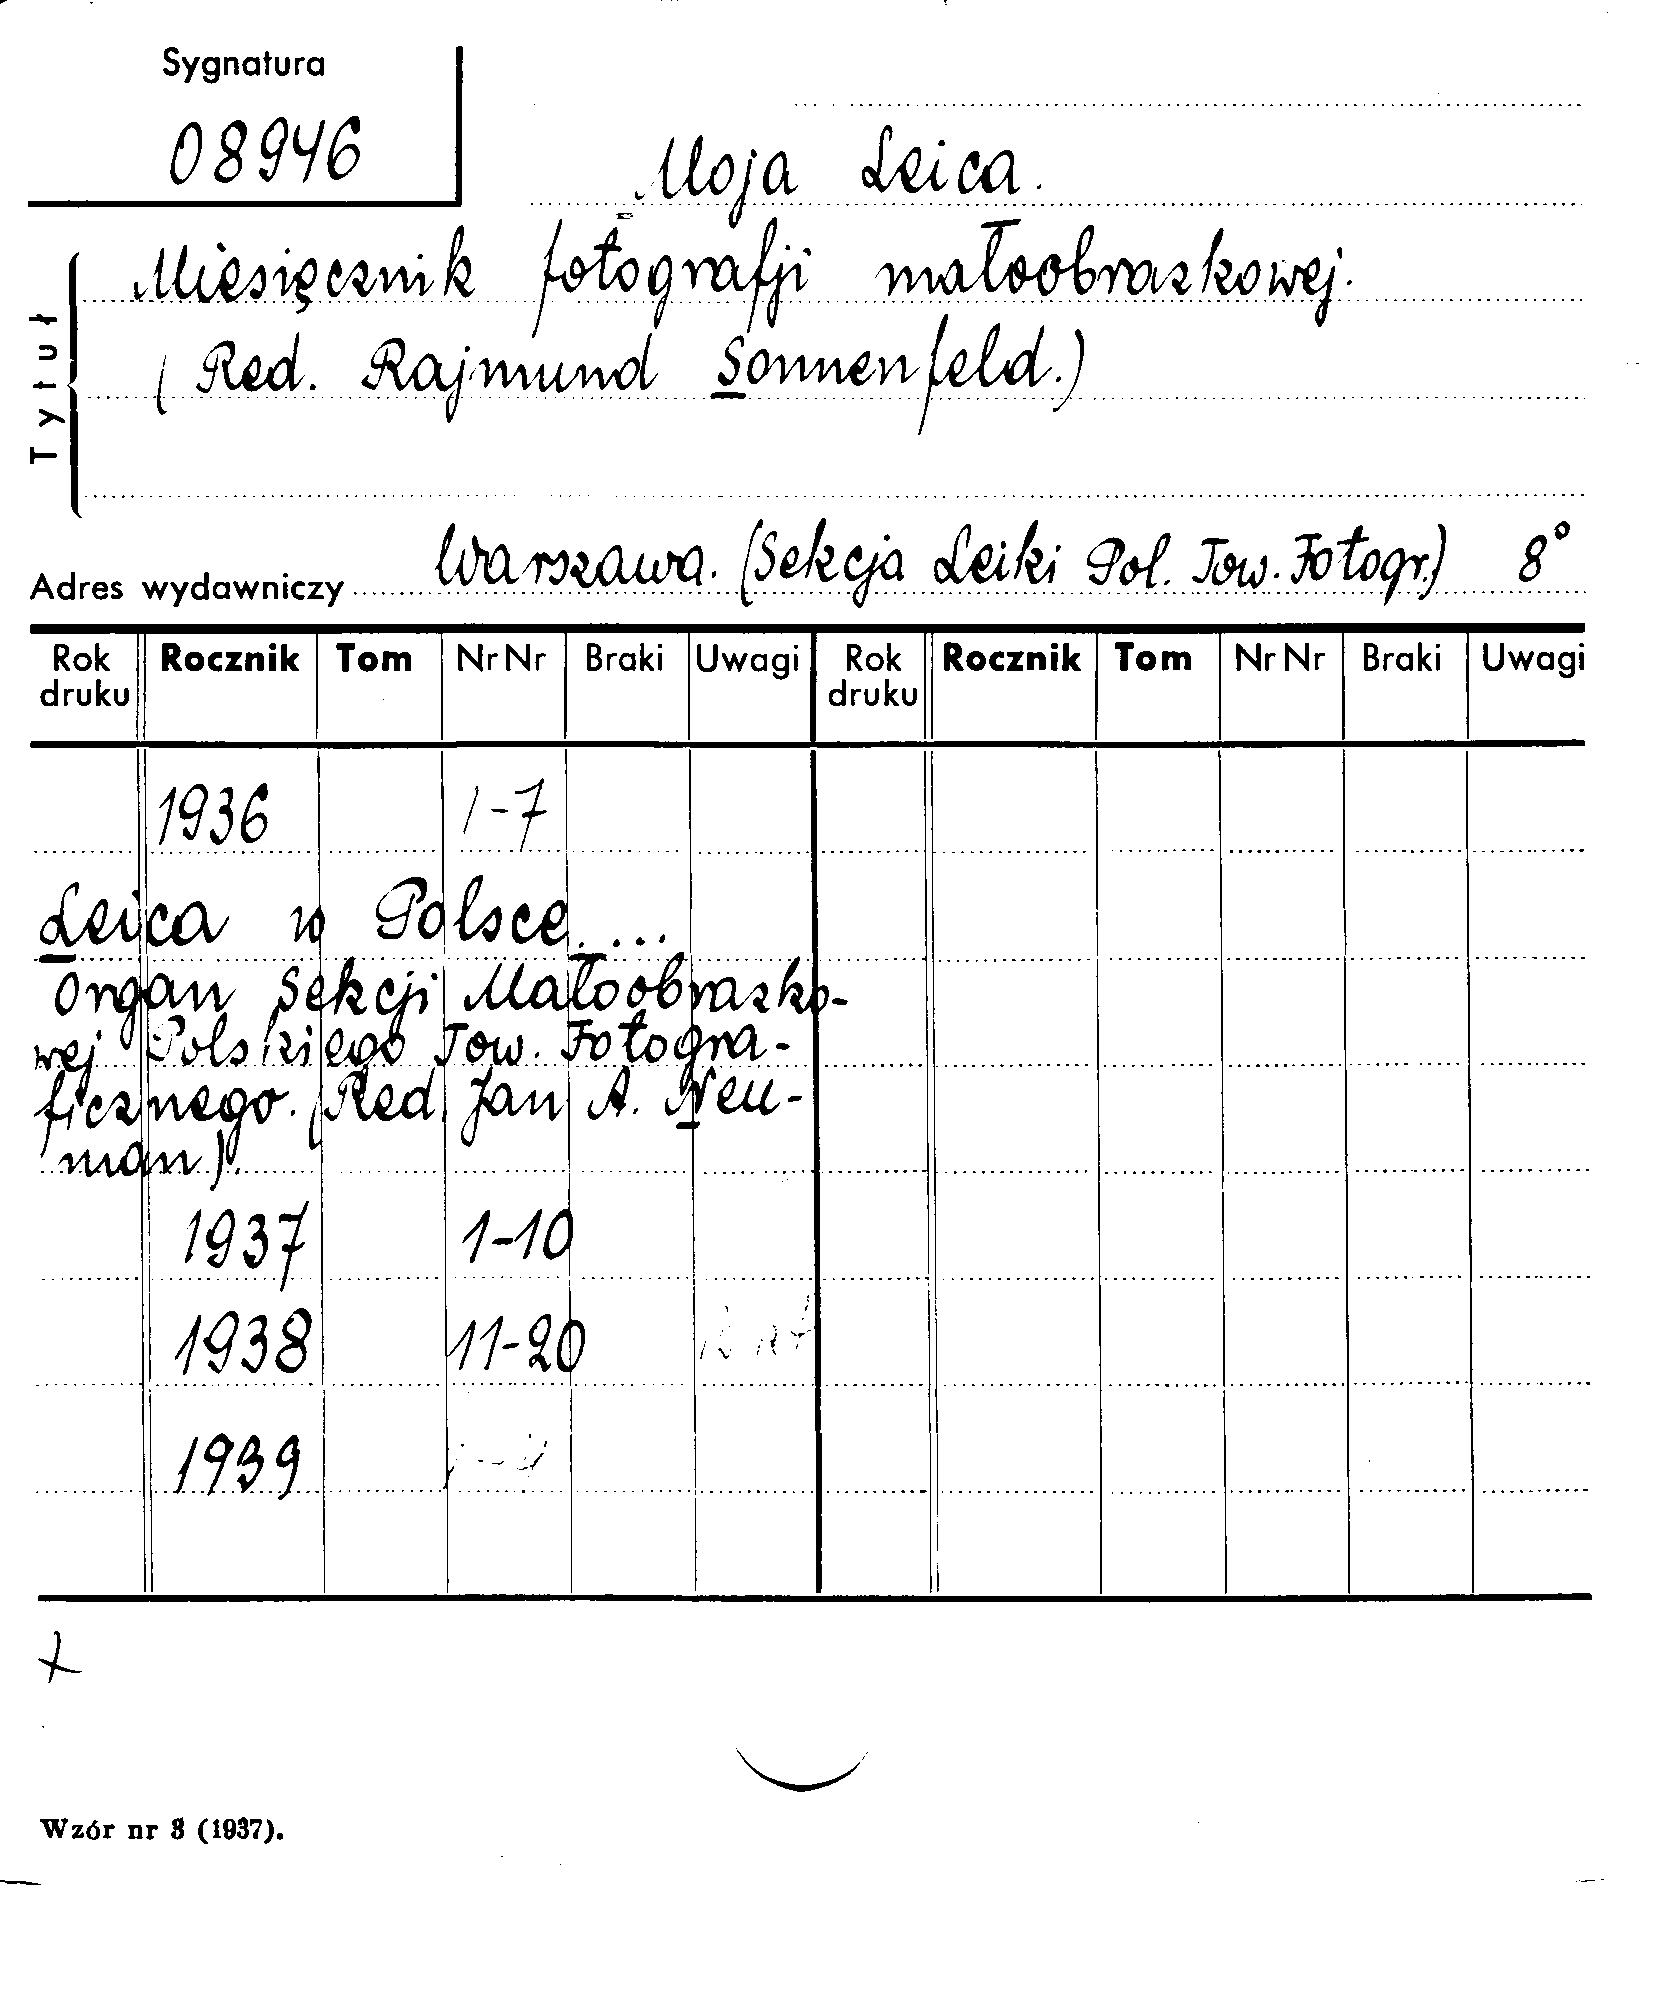 Sygnatura
08946
Moja Leica.
Tytuł
Miesięcznik fotografji małoobrazkowej.
(Red. Rajmund Sonnenfeld.)
Adres wydawniczy Warszawa. (Sekcja Leiki Pol. Tow. Fotogr.) 8°
Rok druku Rocznik Tom Nr Nr Braki Uwagi Rok druku Rocznik Tom Nr Nr Braki Uwagi
1936 1-7
Leica w Polsce.....
Organ Sekcji Małoobrazko-
wej Polskiego Tow. Fotogra-
ficznego. (Red. Jan A. Neu-
man).
1937 1-10
1938 11-20
1939
Wzór nr 3 (1937).